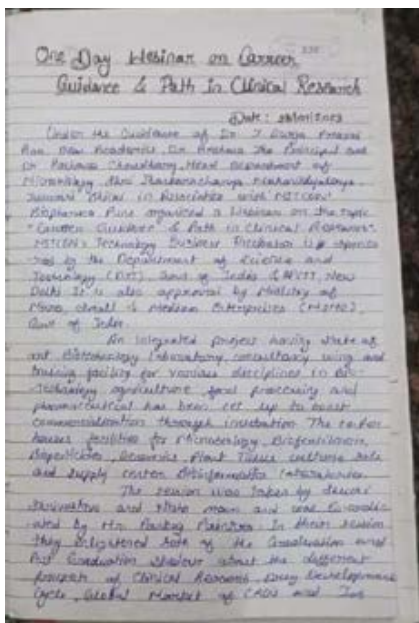 One Day Webinar on Carreer
Guidance & Path in Clinical Research
Date :
Under the Guidance of Dr. J Durga Prasad
Rao Dean Academics, Dr. Archana Jha Principal and
Dr Rachana Choudhary, Head Department of
Microbiology Shri Shankaracharya Mahavidyalaya
Junwani Bhilai in Association with MITCON
Biopharma Pune organized a Webinar on the topic
"Carreer Guidance & Path in Clinical Research".
MITCON's Technology Business Incubator is
by the Department of Science and
Technology (DST), Govt of India & New
Delhi. It is also approved by Ministry of
Micro, Small & Medium Enterprises (MSME),
Govt of India.
An integrated project having state of
art Biotechnology laboratory, consultancy wing and
training facility for various disciplines in Bio-
technology agriculture, food processing and
pharmaceutical has been set up to boost
commercialisation through incubation. The
houses facilities for Microbiology, Biofertilizers,
Biopesticides, Plant Tissue culture
and supply center Bioinformatics laboratories.
The session was taken by
and and was
by Mr. Pankaj In their session
they enlightened both of the Graduation and
Post Graduation about the different
prospects of Clinical Research, Drug Development
Cycle, Global Market of CROs and